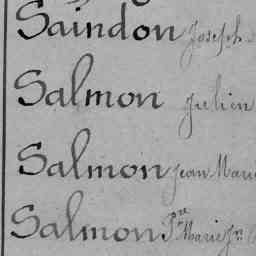 Saindon Joseph
Salmon Julien
Salmon Jean Marie
Salmon Pre Marie Jn